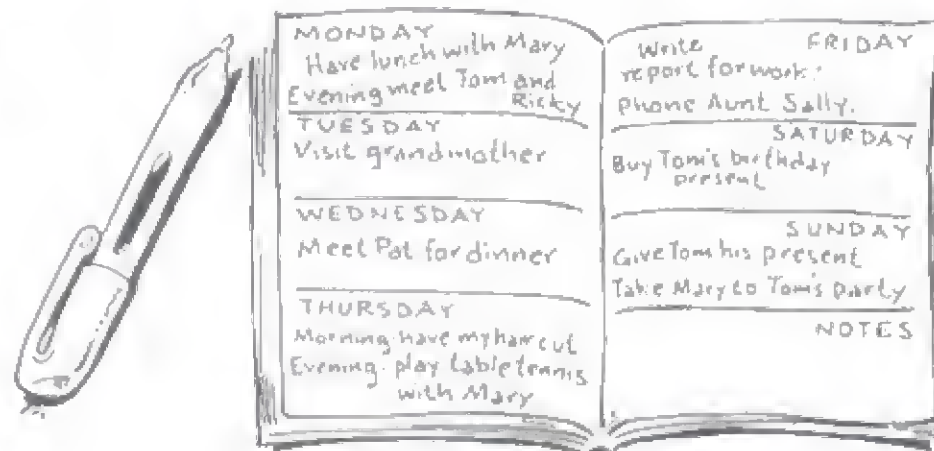 MONDAY
Have lunch with Mary
Evening meet Tom and
Ricky
TUESDAY
Visit grandmother
WEDNESDAY
Meet Pat for dinner
THURSDAY
Morning: have my hair cut
Evening: play table tennis
with Mary
FRIDAY
Write
report for work:
phone Aunt Sally.
SATURDAY
Buy Tom's birthday
present
SUNDAY
Give Tom his present
Take Mary to Tom's party
NOTES